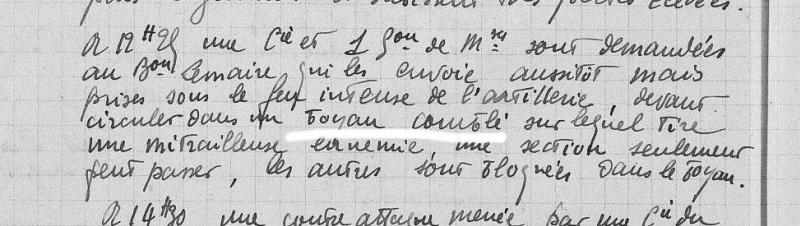 A 12 H 25 une Cie et 1 Son de Mses sont demandées
au Bon Lemaire qui les envoie aussitôt mais
prises sous le feu intense de l'artillerie, devant
circuler dans un boyau comblé sur lequel tire
une mitrailleuse ennemie, une section seulement
peut passer, les autres sont bloquées dans le boyau.
A 14 H 30 une contre attaque menée par une Cie du